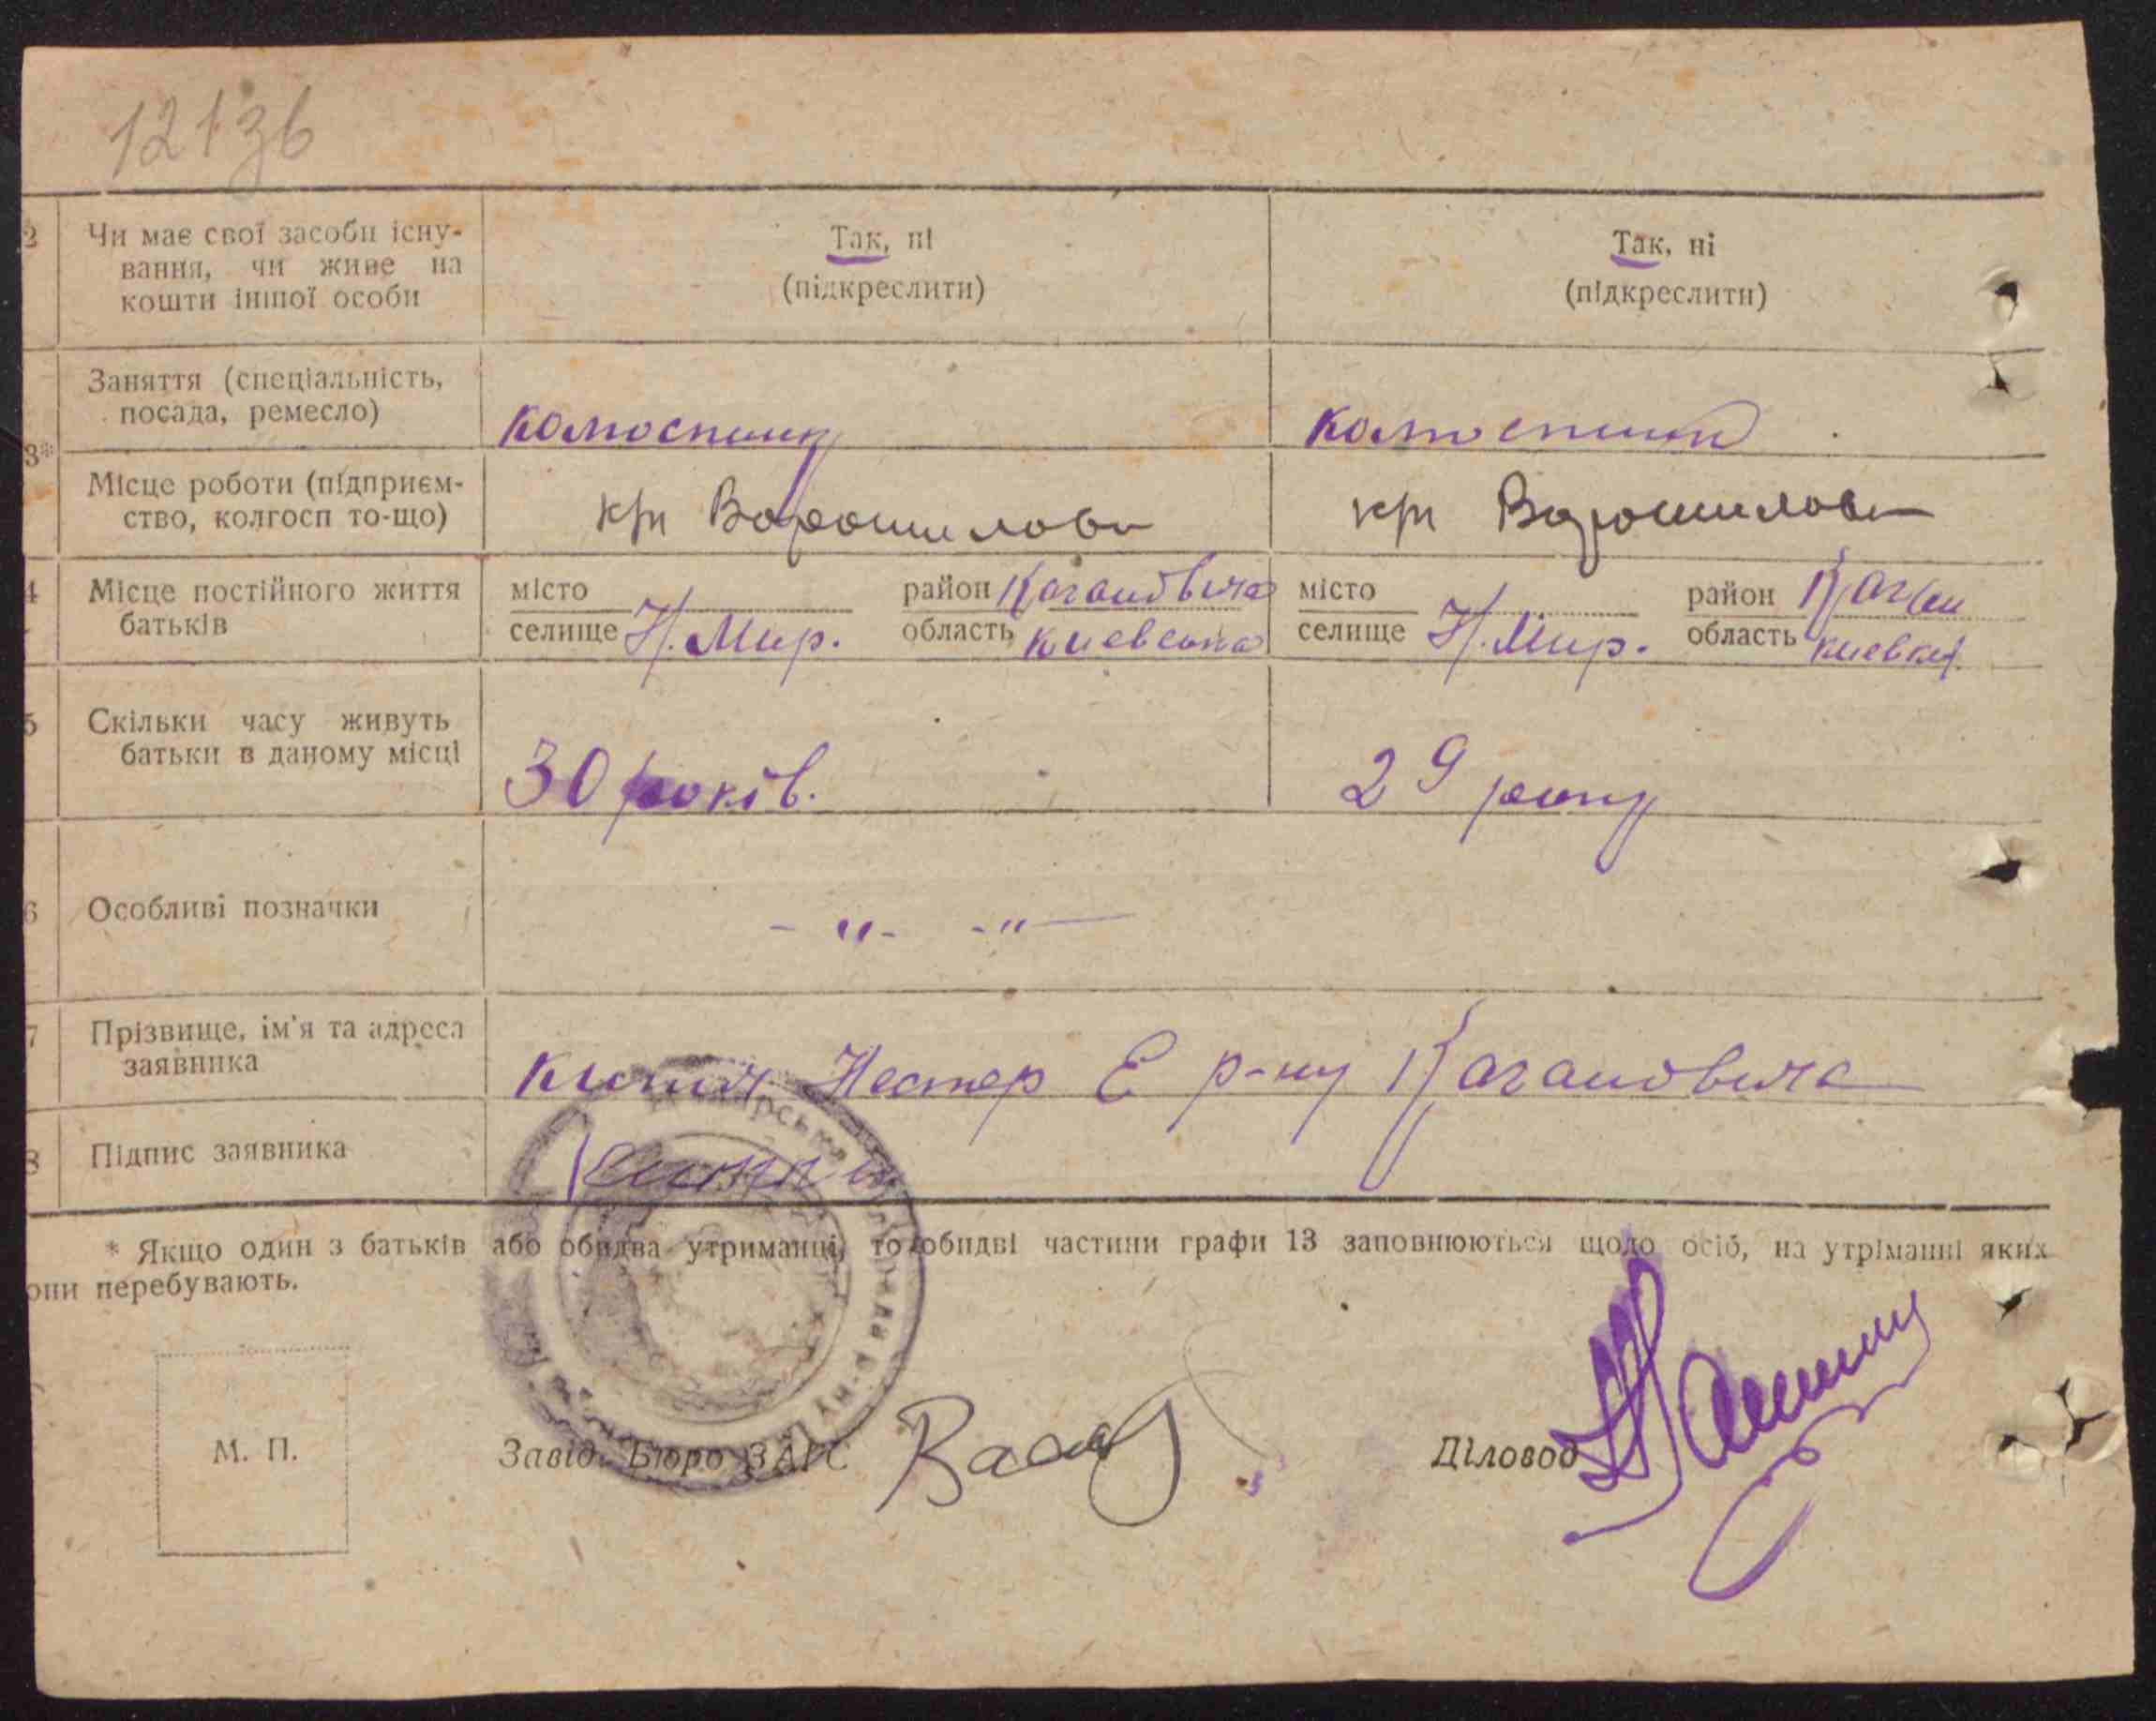 121зв
2 Чи має свої засоби існу- Так, ні Так, ні
вання, чи живе на (підкреслити) (підкреслити)
кошти іншої особи
Заняття (спеціальність,
посада, ремесло)
3*
Місце роботи (підприєм- к/г Ворошилова к/г Ворошилова
ство, колгосп то-що)
4 Місце постійного життя місто район Кагановича місто район Каган
батьків селище Н. Мир. область киевська селище Н. Мир. область
5 Скільки часу живуть
батьки в даному місці 30 років. 29 року
6 Особливі позначки - "- -"-
7 Прізвище, ім'я та адреса
заявника Нестер Е р-ну Кагановича
8 Підпис заявника
* Якщо один з батьків або обидва утриманці, то обидві частини графи 13 заповнюються щодо осіб, на утріманні яких
они перебувають.
М. П. Завід. Бюро ЗАГС Діловод